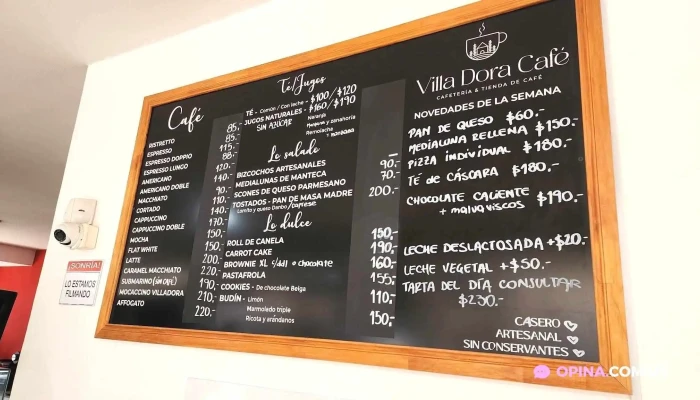 Café
RISTRETTO 85.-
ESPRESSO 85.-
ESPRESSO DOPPIO 115.-
ESPRESSO LUNGO 88.-
AMERICANO 120.-
AMERICANO DOBLE 140.-
MACCHIATO 90.-
CORTADO 110.-
CAPPUCCINO 140.-
CAPPUCCINO DOBLE 170.-
MOCHA 150.-
FLAT WHITE 150.-
LATTE 200.-
CARAMEL MACCHIATO 220.-
SUBMARINO (SIN CAFÉ) 190.-
MOCACCINO VILLADORA 210.-
AFFOGATO 220.-
Té/Jugos
TÉ - Común / Con leche - $100 / $120
JUGOS NATURALES - $160 / $190
SIN AZÚCAR Naranja
Manzana y zanahoria
Remolacha
y manzana
Lo salado
BIZCOCHOS ARTESANALES 90.-
MEDIALUNAS DE MANTECA 70.-
SCONES DE QUESO PARMESANO
TOSTADOS - PAN DE MASA MADRE 200.-
Lomito y queso Danbo / Caprese
Lo dulce
ROLL DE CANELA 150.-
CARROT CAKE 190.-
BROWNIE XL c/ddl o chocolate 160.-
PASTAFROLA 155.-
COOKIES - De chocolate Belga 110.-
BUDÍN - Limón
Marmolado triple
Ricota y arándanos 150.-
Villa Dora Café
CAFETERÍA & TIENDA DE CAFÉ
NOVEDADES DE LA SEMANA
PAN DE QUESO $60.-
MEDIALUNA RELLENA $150.-
PIZZA INDIVIDUAL $180.-
TÉ de CÁSCARA $180.-
CHOCOLATE CALIENTE
+ malvaviscos $190.-
LECHE DESLACTOSADA +$20.-
LECHE VEGETAL +$50.-
TARTA DEL DÍA CONSULTAR
$230.-
CASERO
ARTESANAL
SIN CONSERVANTES
¡SONRÍA!
LO ESTAMOS
FILMANDO
OPINA.COM.UY